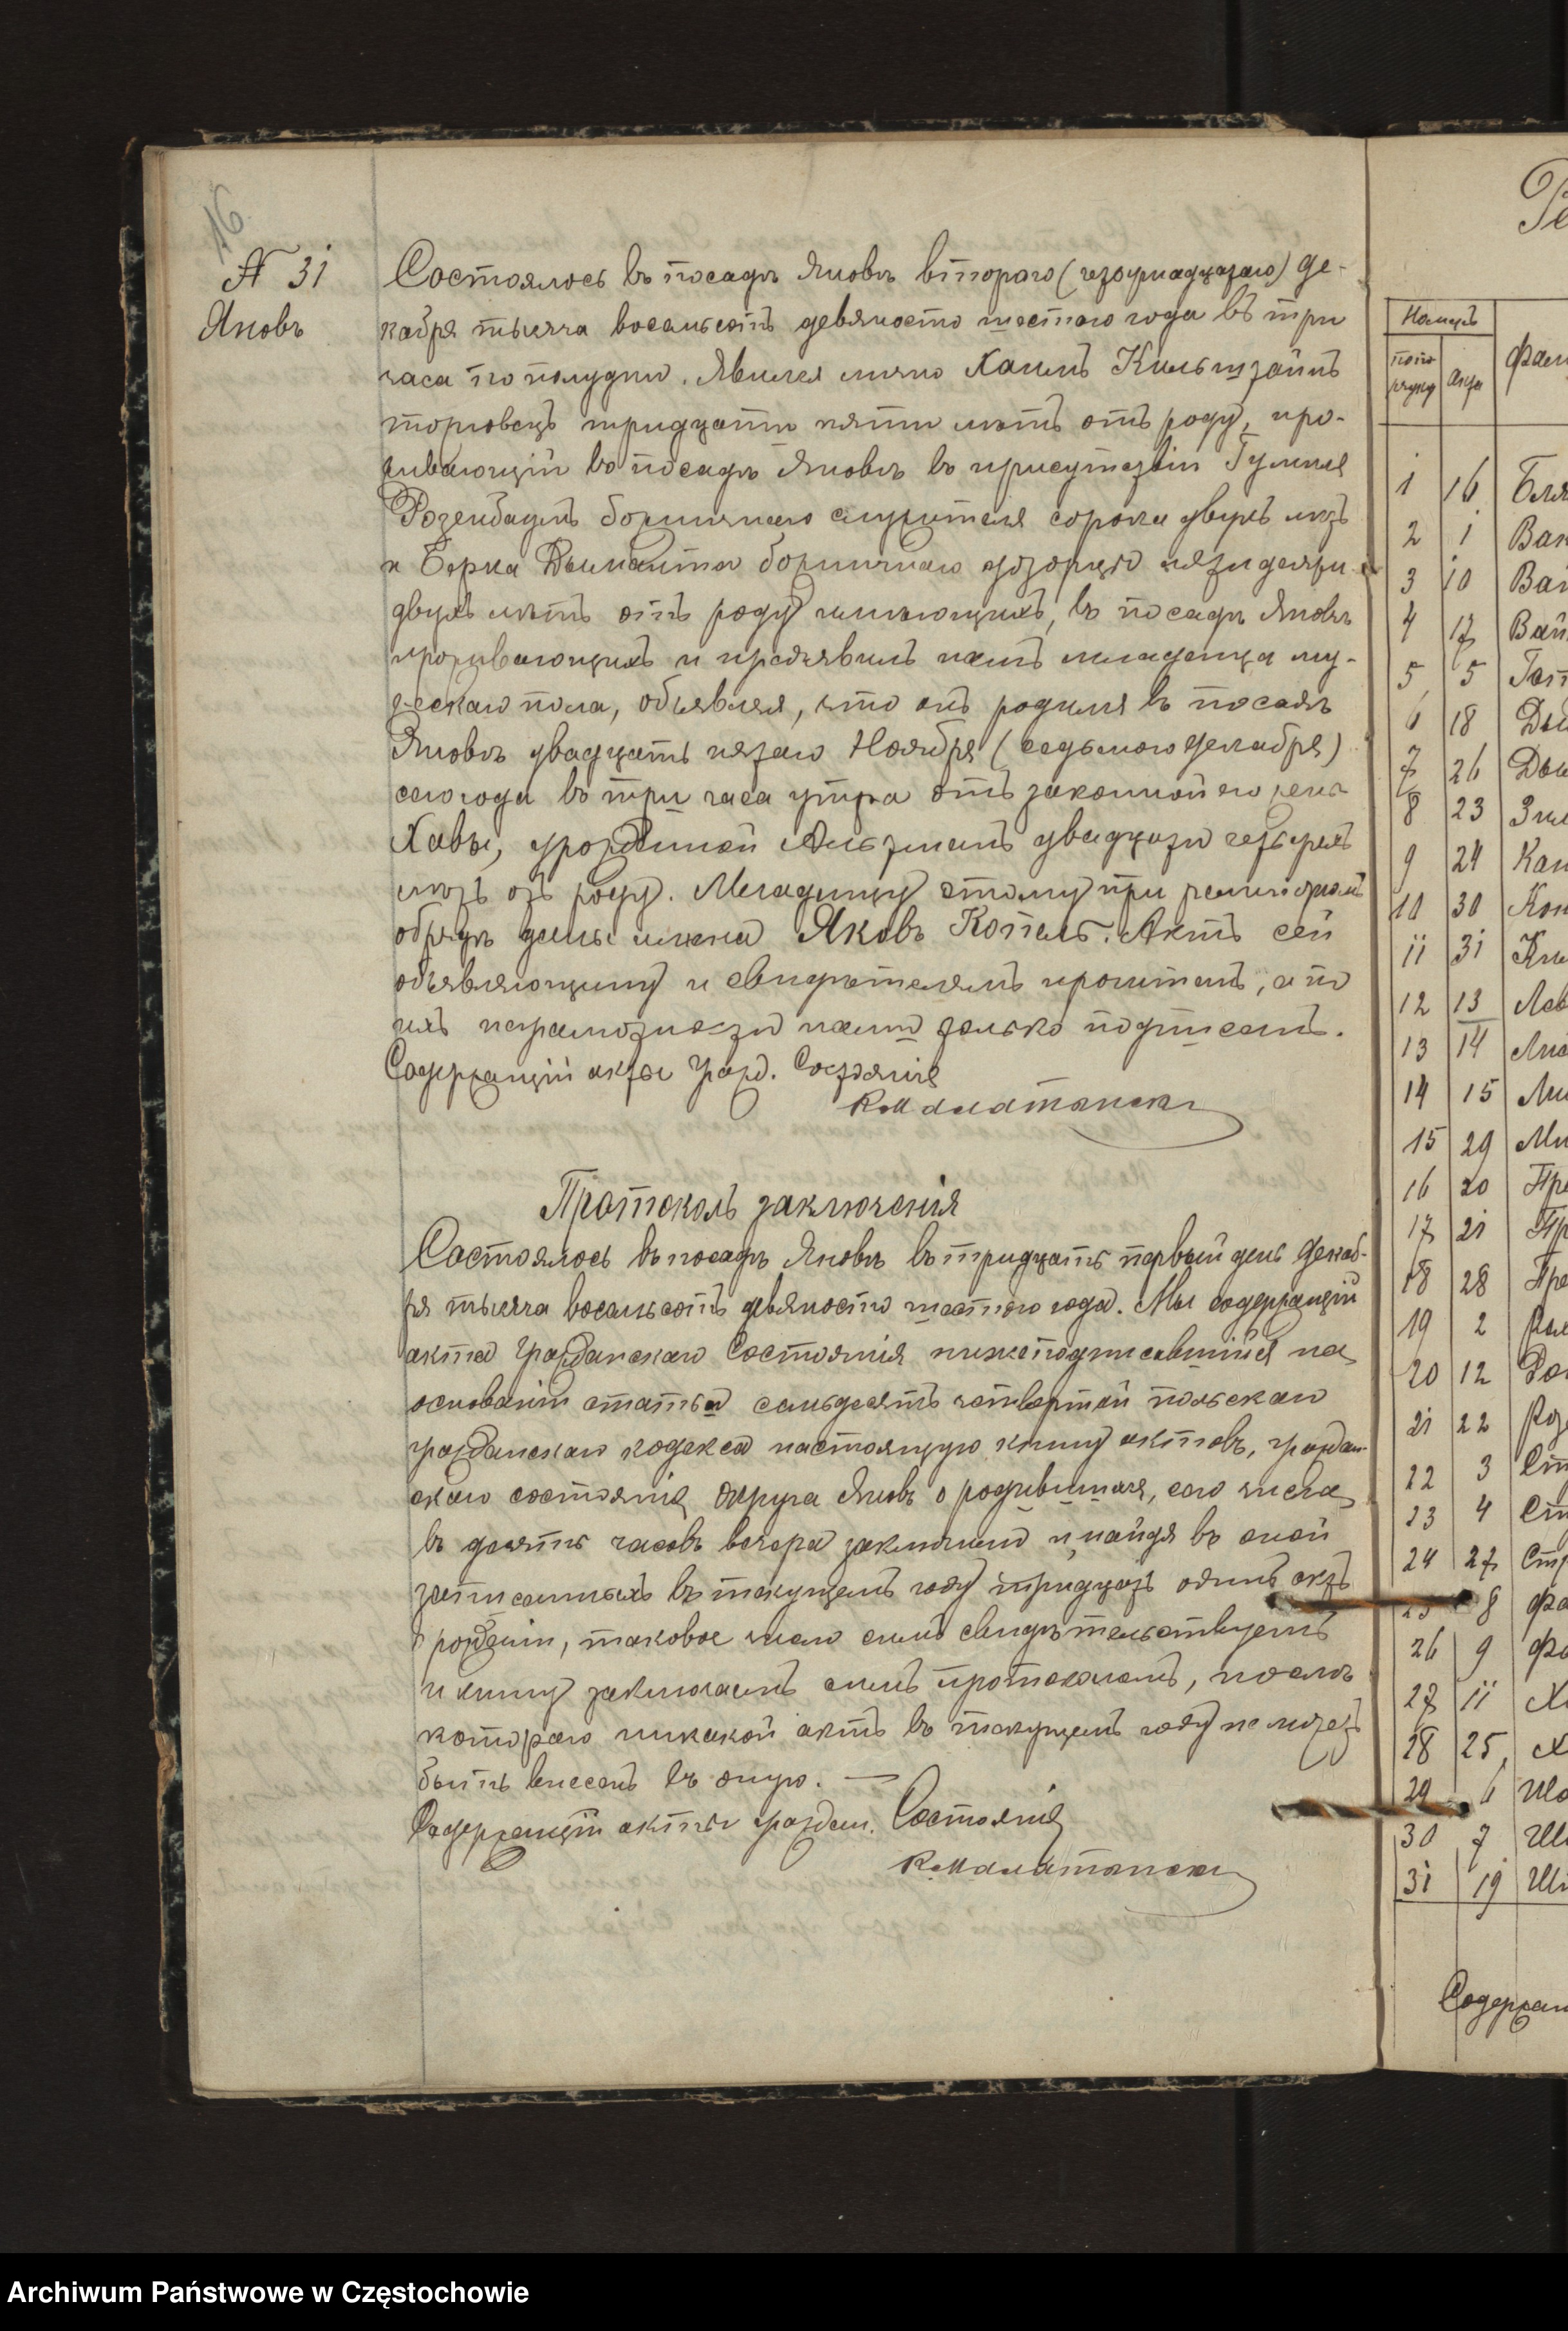 16
№ 31
Яновъ
Состоялось въ посадѣ Яновѣ втораго (четырнадцатаго) де-
кабря тысяча восемьсотъ девяносто шестого года въ три
часа по полудни. Явился лично Хаимъ Кильштайнъ
торговецъ тридцати пяти лѣтъ отъ роду, про-
живающій въ посадѣ Яновѣ въ присутствіи
Розенбаумъ больничнаго служителя сорока двухъ лѣтъ
и Берка больничнаго пятидесяти
двухъ лѣтъ отъ роду имѣющихъ, въ посадѣ Яновѣ
проживающихъ и предъявилъ намъ младенца му-
жескаго пола, объявляя, что онъ родился въ посадѣ
Яновѣ двадцать пятаго Ноября (седьмого Декабря)
сего года въ три часа утра отъ законной его жены
Хавы, урожденной двадцати четырехъ
лѣтъ отъ роду. Младенцу этому при религіозномъ
обрядѣ даны имена Яковъ Копель. Актъ сей
объявляющему и свидѣтелямъ прочитанъ, а по
ихъ неграмотности нами только подписанъ.
Содержащій акты Гражд. Состоянія
Протоколъ заключенія
Состоялось въ посадѣ Яновѣ въ тридцать первый день Декаб-
ря тысяча восемьсотъ девяносто шестого года. Мы содержащій
акта Гражданскаго Состоянія нижеподписавшійся на
основаніи статьи семьдесятъ четвертой польскаго
гражданскаго кодекса настоящую книгу актовъ, граждан-
скаго состоянія округа Яновъ о родившихся, сего числа
въ десять часовъ вечера заключили и найдя въ оной
записанныхъ въ текущемъ году тридцать одинъ актъ
о рожденіи, таковое число симъ свидѣтельствуемъ
и книгу заключаемъ симъ протоколомъ, послѣ
котораго никакой актъ въ текущемъ году не можетъ
быть внесенъ въ оную. —
Содержащій акты граждан. Состоянія
Номеръ
по по-
рядку
акта
Фам
1 16 Бля
2 1 Ван
3 10 Вай
4 17 Вай
5 5 Гот
6 18 Ды
7 26 Ды
8 23 Зил
9 24 Кан
10 30 Кон
11 31 Ки
12 13 Лев
13 14
14 15
15 29
16 20 Пре
17 21 Пр
18 28 Пре
19 2
20 12
21 22 Роз
22 3 Ст
23 4 Ст
24 27 Стр
25 8
26 9
27 11 Х
28 25 Х
29 6
30 7
31 19
Содержащ
Archiwum Państwowe w Częstochowie